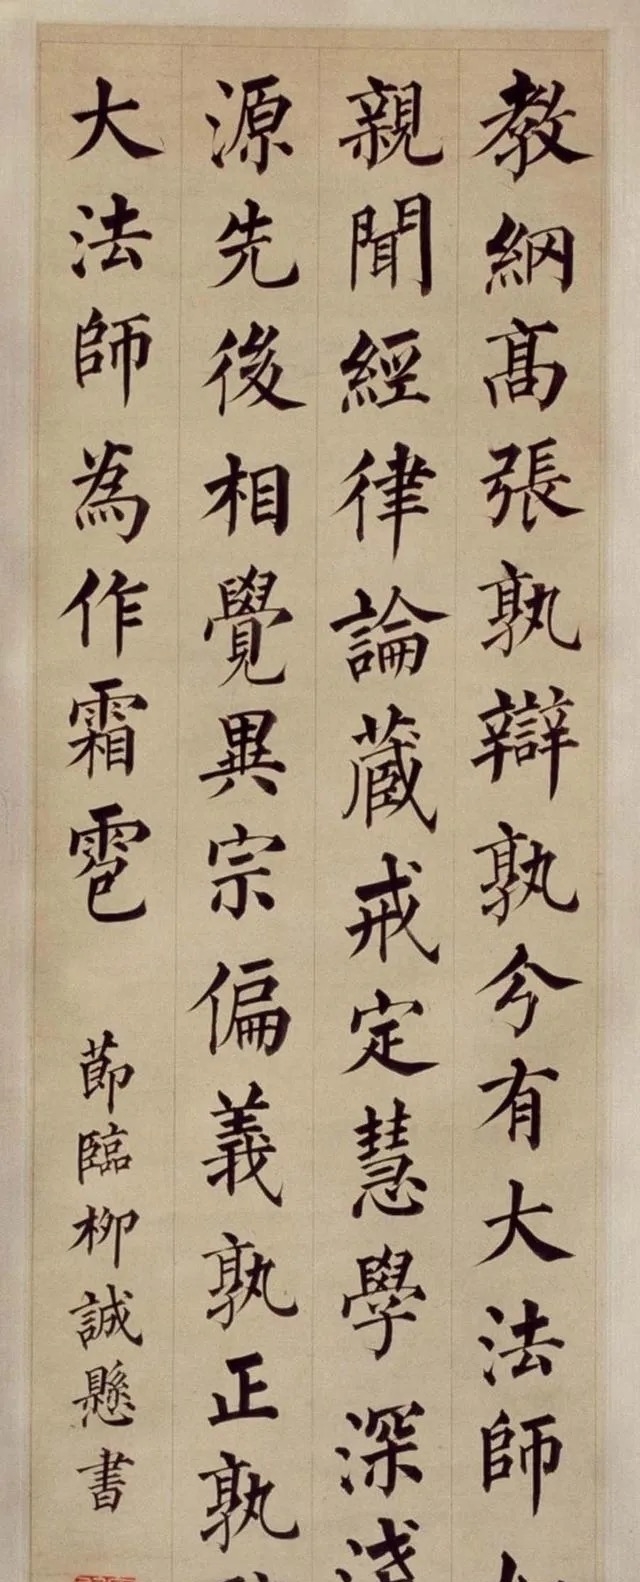 教綱髙張孰辯孰今有大法師
親聞經律論藏戒定慧學深淺
源先後相覺異宗偏義孰正孰
大法師為作霜雹
莭臨柳誠懸書